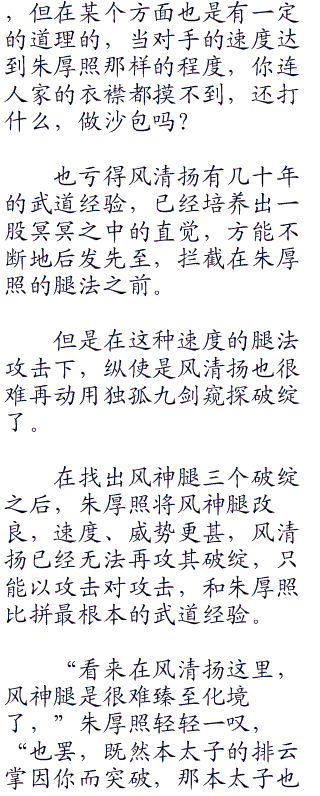 ，但在某个方面也是有一定
的道理的，当对手的速度达
到朱厚照那样的程度，你连
人家的衣襟都摸不到，还打
什么，做沙包吗？
也亏得风清扬有几十年
的武道经验，已经培养出一
股冥冥之中的直觉，方能不
断地后发先至，拦截在朱厚
照的腿法之前。
但是在这种速度的腿法
攻击下，纵使是风清扬也很
难再动用独孤九剑窥探破绽
了。
在找出风神腿三个破绽
之后，朱厚照将风神腿改
良，速度、威势更甚，风清
扬已经无法再攻其破绽，只
能以攻击对攻击，和朱厚照
比拼最根本的武道经验。
“看来在风清扬这里，
风神腿是很难臻至化境
了，”朱厚照轻轻一叹，
“也罢，既然本太子的排云
掌因你而突破，那本太子也